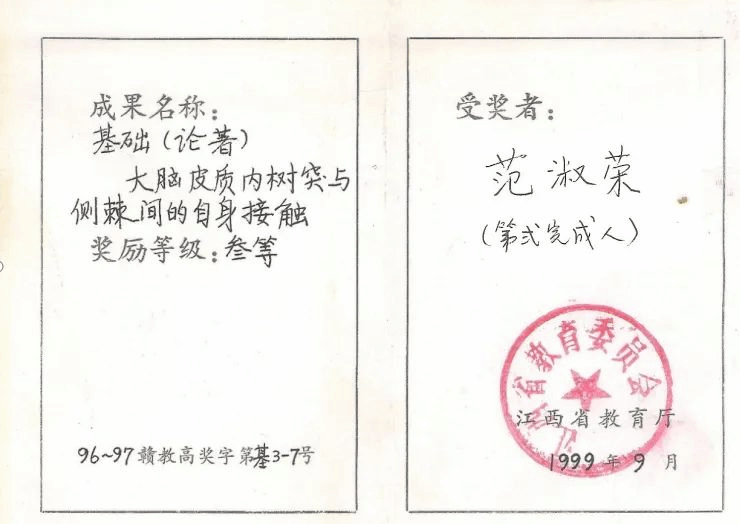 成果名称：
基础（论著）
大脑皮质内树突与
侧棘间的自身接触
奖励等级：叁等
96~97赣教高奖字第基3-7号
受奖者：
范淑荣
（第弍完成人）
江西省教育委员会
江西省教育厅
1999年9月